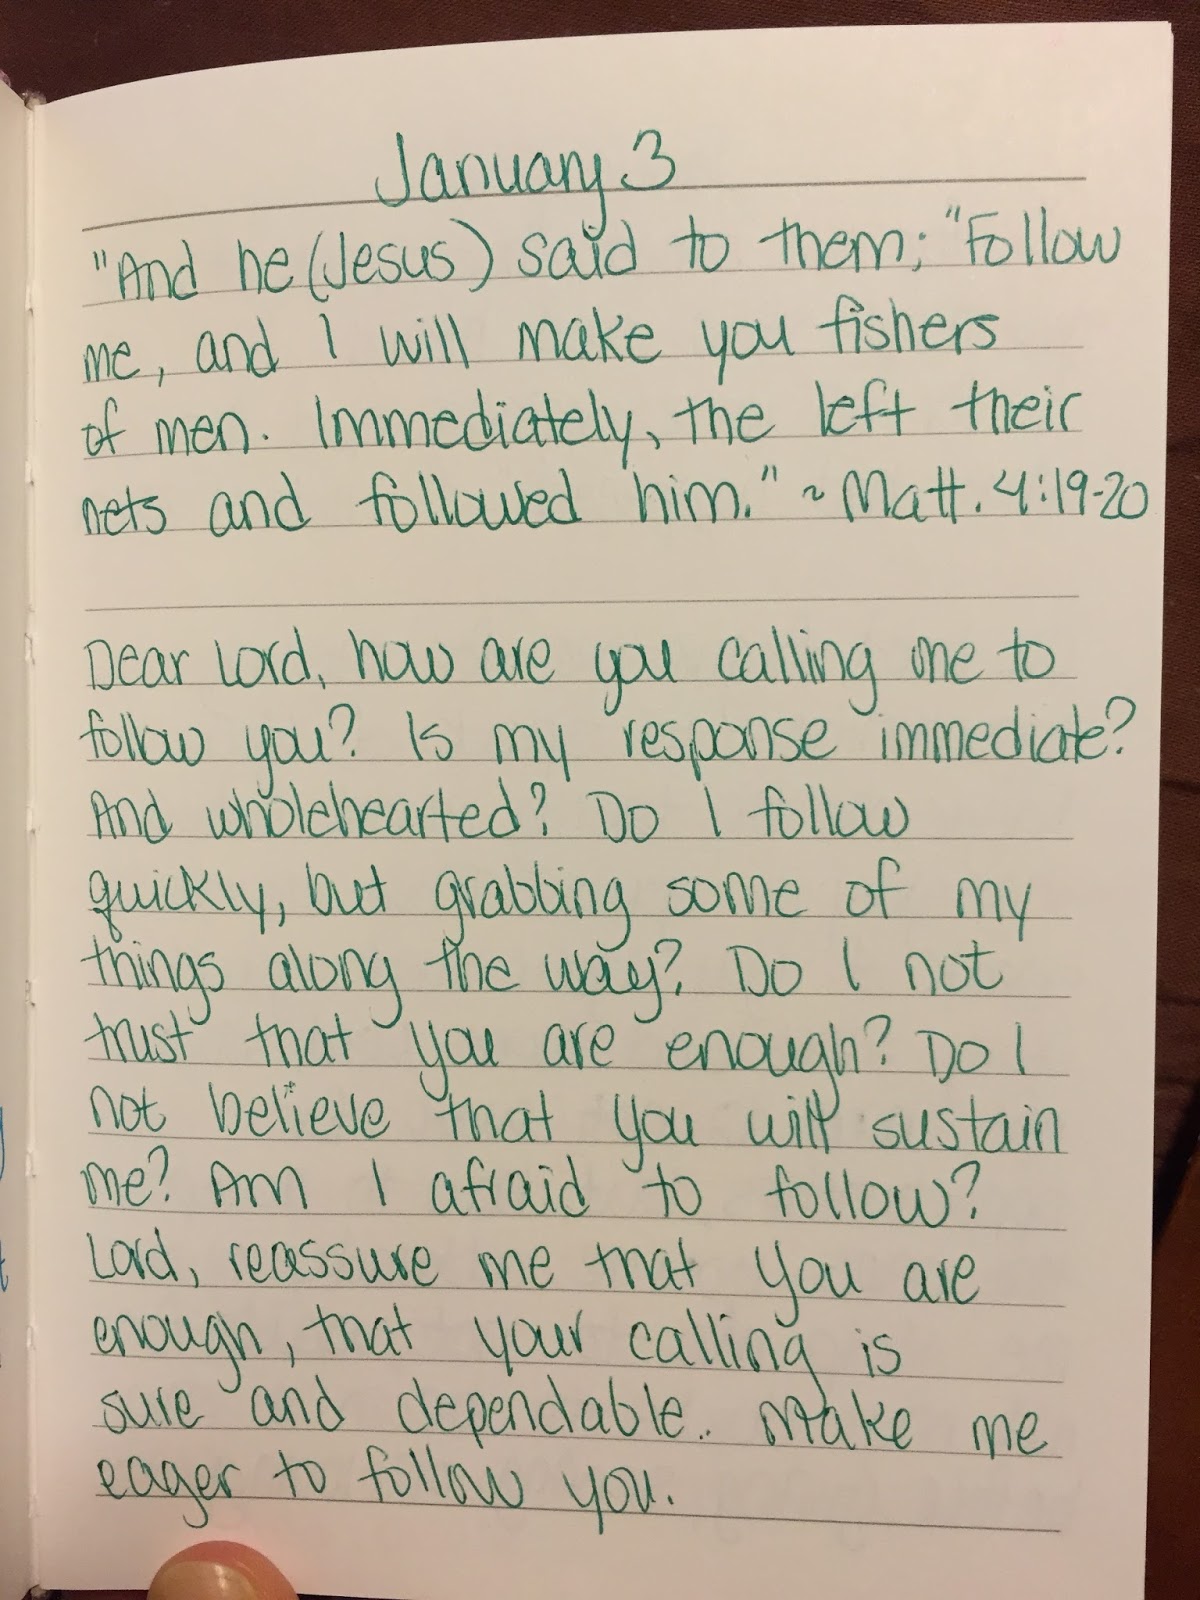 January 3
"And he (Jesus) said to them; "Follow
me, and I will make you fishers
of men. Immediately, the left their
nets and followed him." ~ Matt. 4:19-20
Dear Lord, how are you calling me to
follow you? Is my response immediate?
And wholehearted? Do I follow
quickly, but grabbing some of my
things along the way? Do I not
trust that you are enough? Do I
not believe that you will sustain
me? Am I afraid to follow?
Lord, reassure me that you are
enough, that your calling is
sure and dependable.. Make me
eager to follow you.